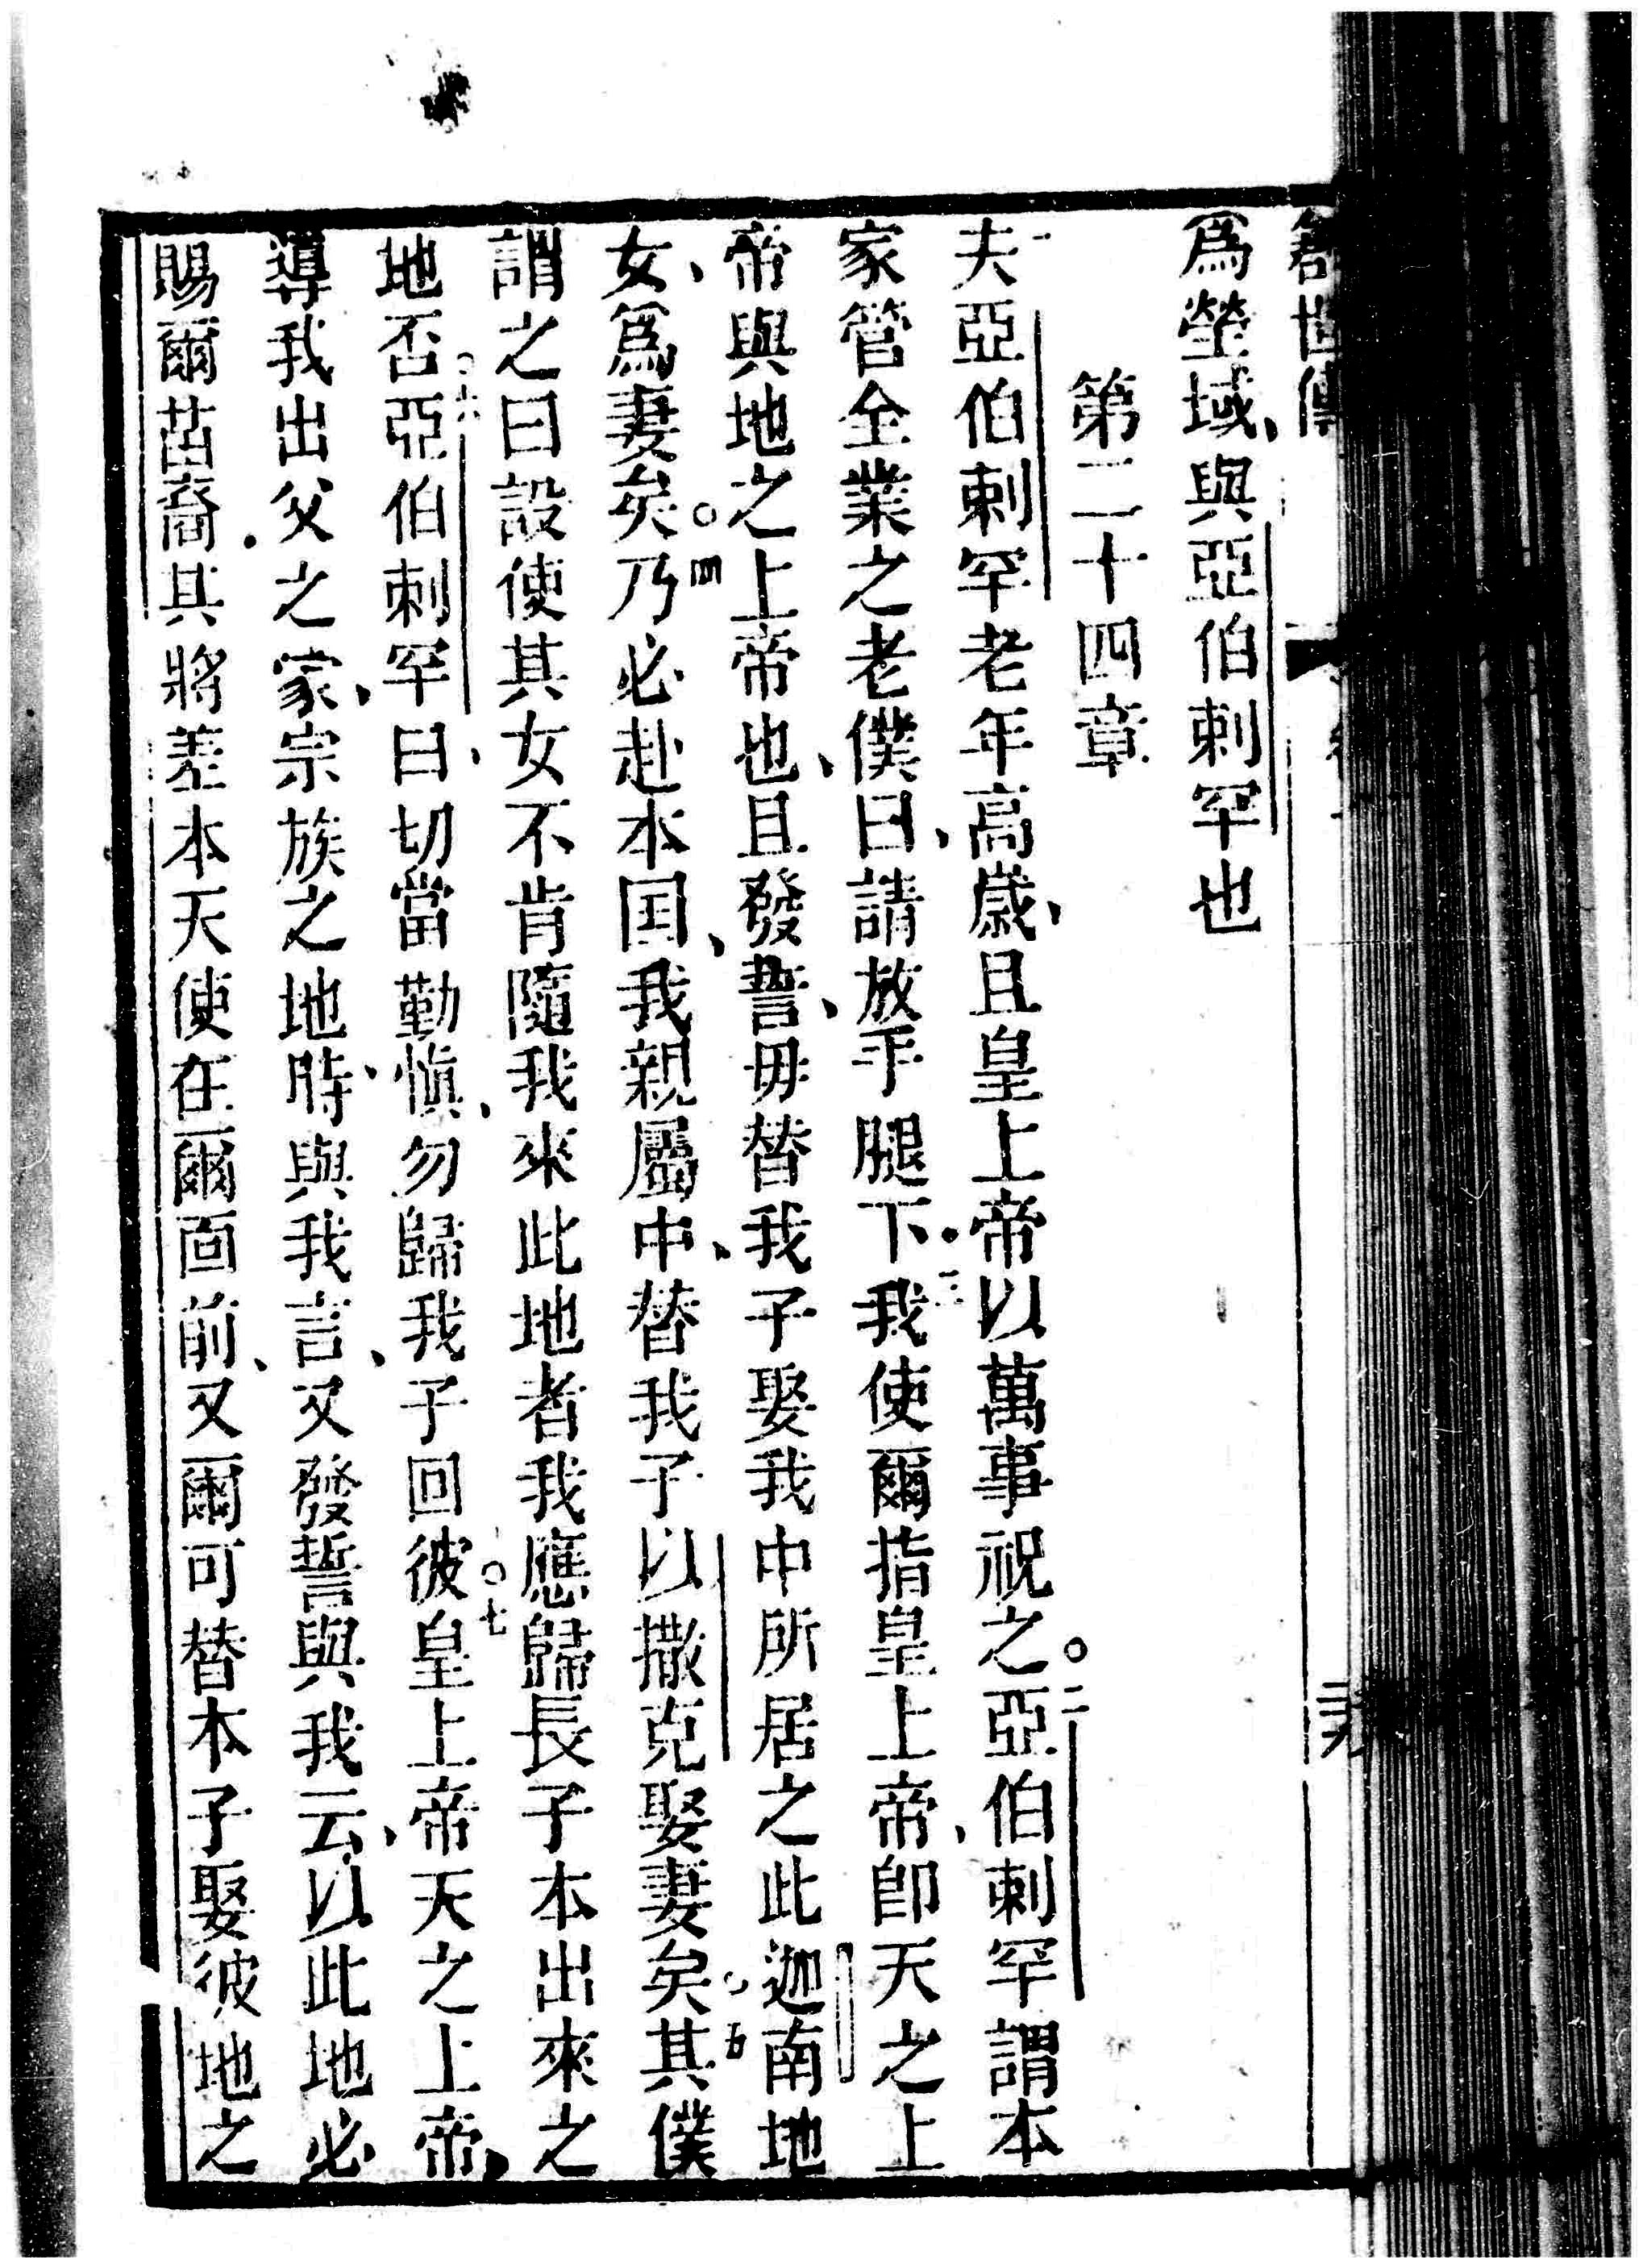 創世傳
為塋域、與亞伯剌罕也
第二十四章
一夫亞伯剌罕老年高歲、且皇上帝以萬事祝之。二亞伯剌罕謂本
家管全業之老僕曰、請放手腿下．三我使爾指皇上帝、卽天之上
帝與地之上帝也、且發誓、毋替我子娶我中所居之此迦南地
女、爲妻矣。四乃必赴本国、我親屬中、替我子以撒克娶妻矣。五其僕
謂之曰設使其女不肯隨我來此地者我應歸長子本出來之
地否。六亞伯刺罕曰、切當勤愼、勿歸我子回彼。七皇上帝天之上帝、
導我出父之家、宗族之地時、與我言、又發誓與我云、以此地必
賜爾苗裔．其將差本天使在爾面前、又爾可替本子娶彼地之